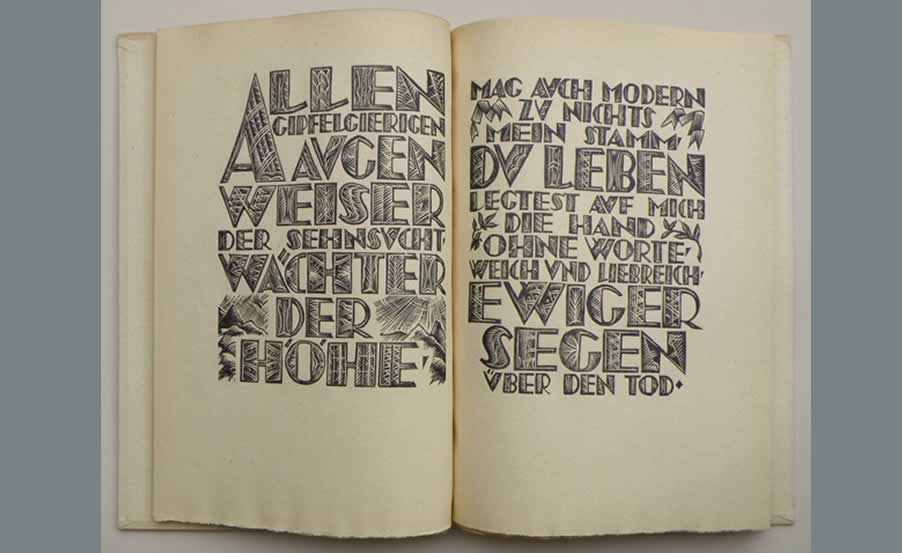 ALLEN
GIPFELGIERIGEN
AVGEN
WEISER
DER SEHNSVCHT·
WÄCHTER
DER
HÖHE'
MAG AVCH MODERN
ZV NICHTS
MEIN STAMM·
DV LEBEN
LEGTEST AVF MICH
DIE HAND
OHNE WORTE'
WEICH VND LIEBREICH·
EWIGER
SEGEN
ÜBER DEN TOD·